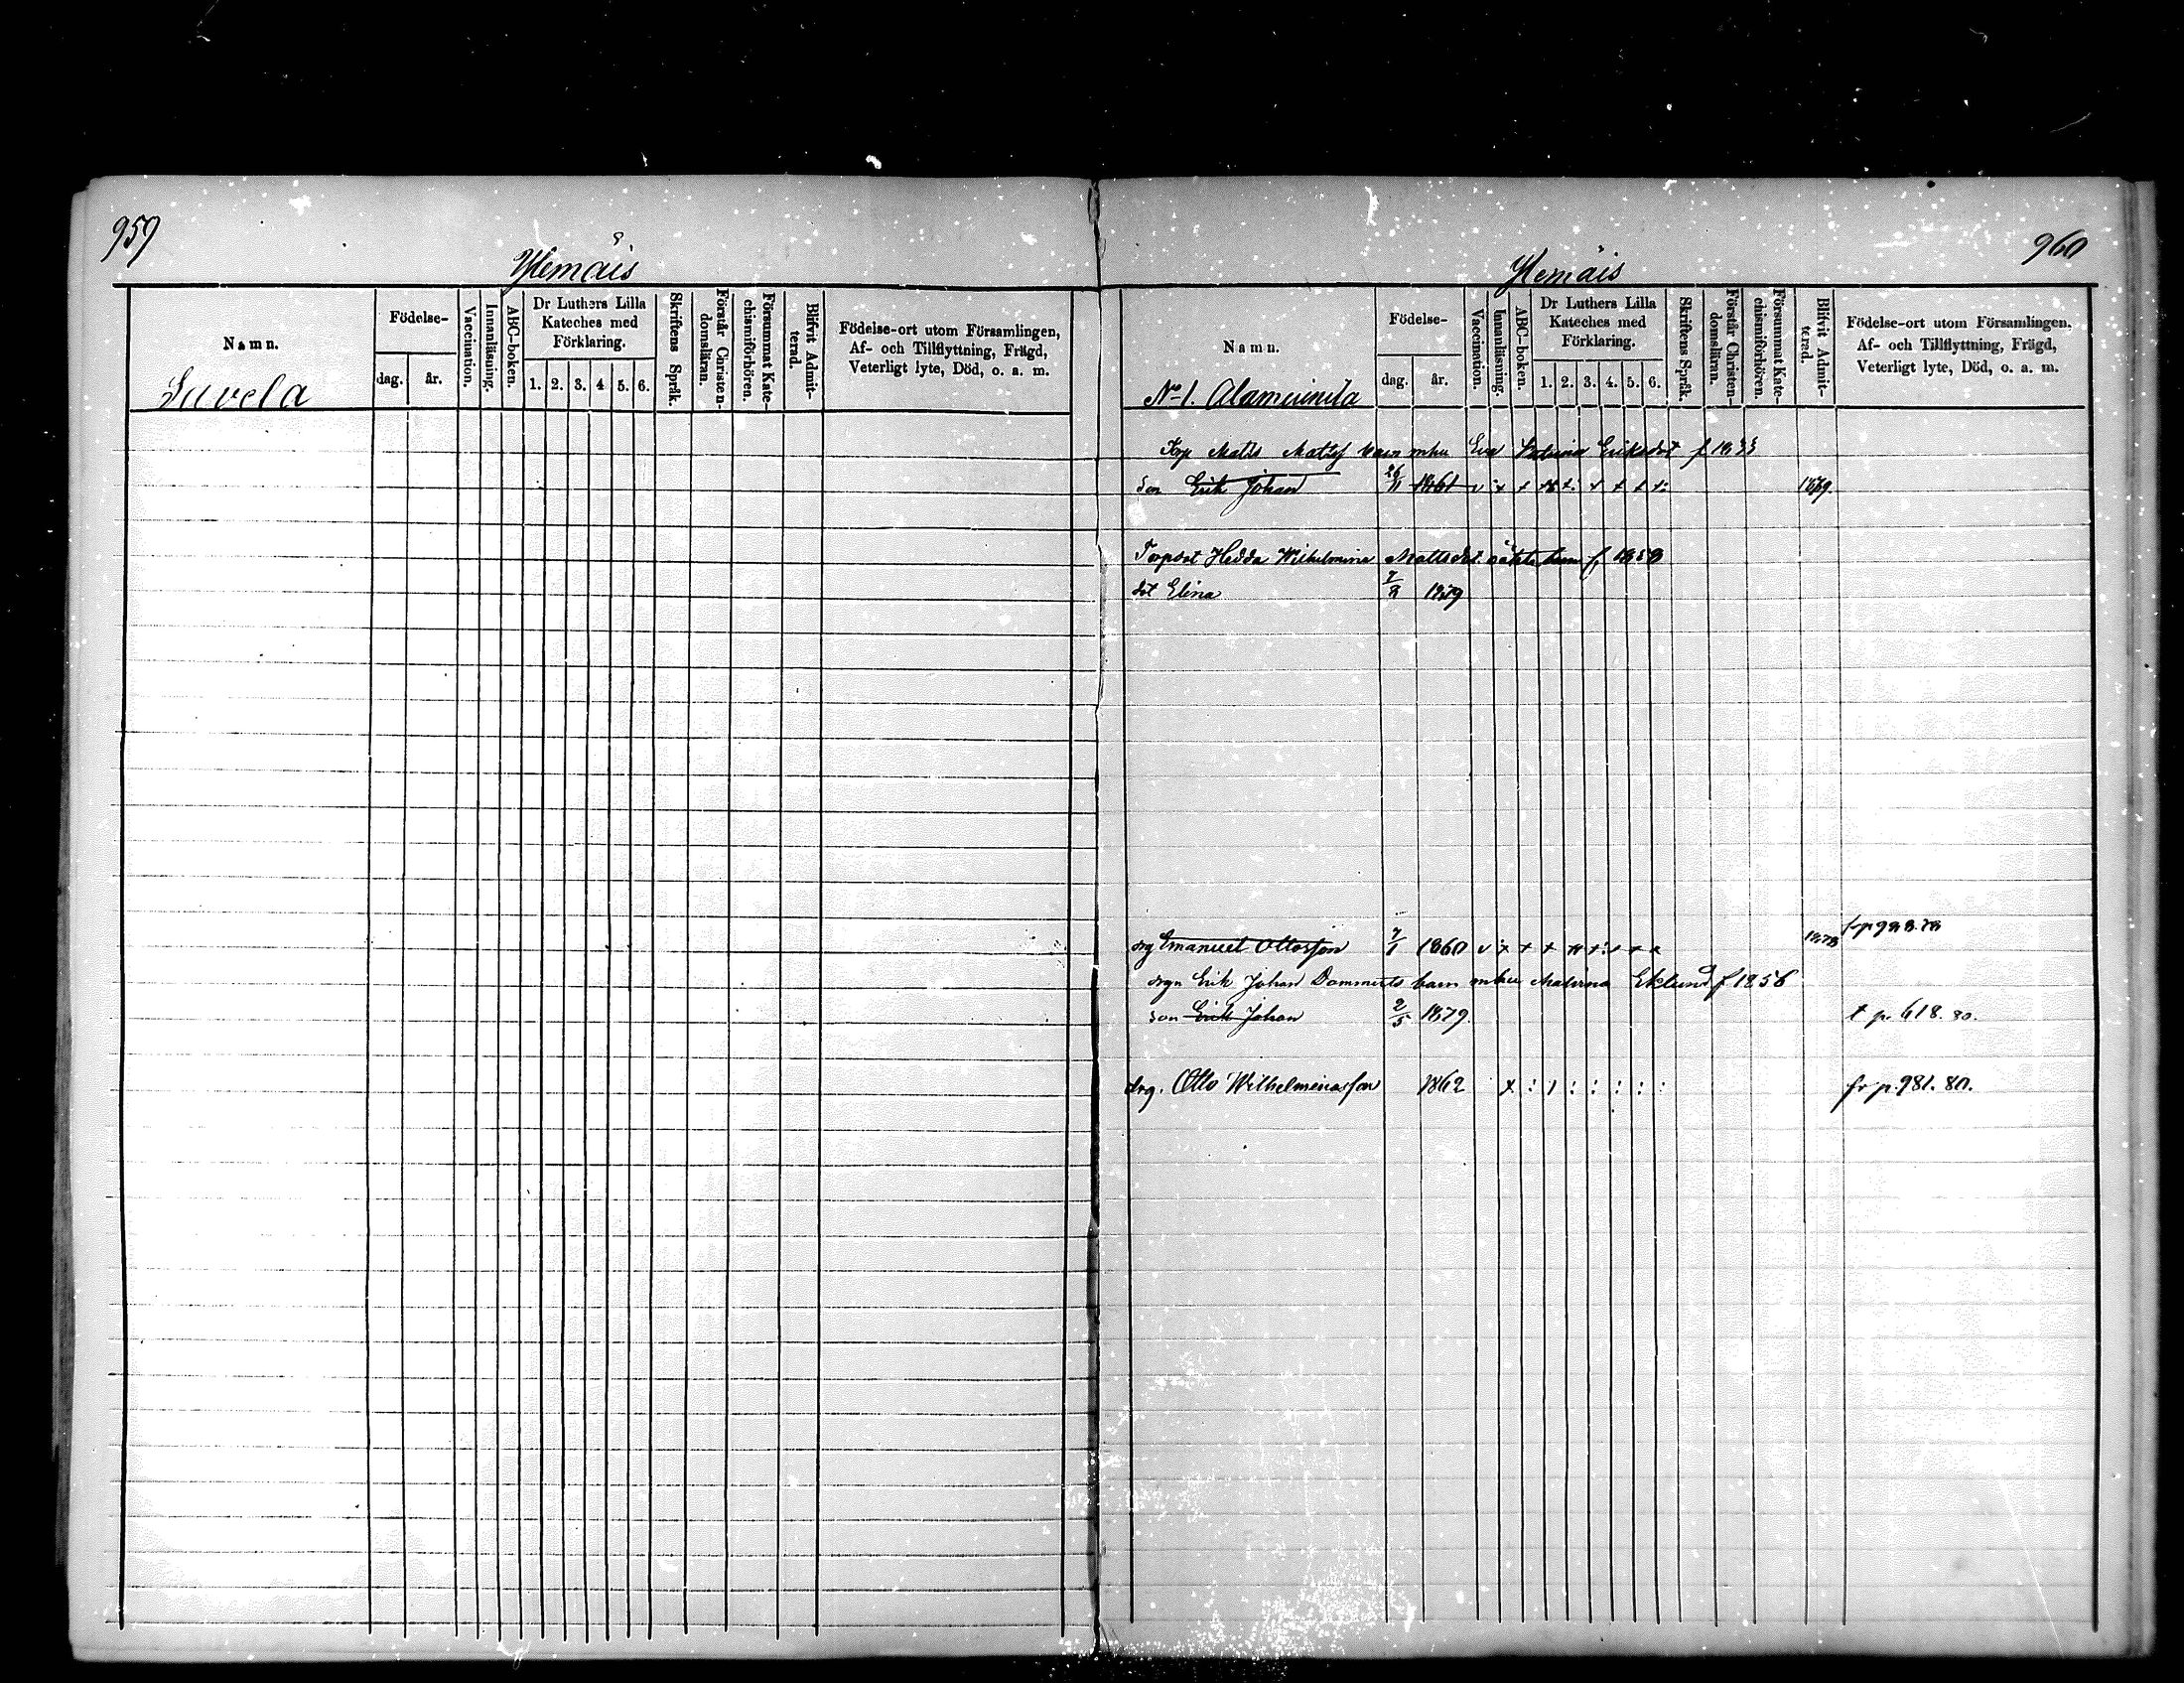 959
Ylemäis
Namn.
Födelse-
dag.
år.
Vaccination.
Innanläsning.
ABC-boken.
Dr Luthers Lilla
Kateches med
Förklaring.
1. 2. 3. 4 5. 6.
Skriftens Språk.
Förstår Christen-
domsläran.
Försummat Kate-
chismiförhören.
Blifvit Admit-
terad.
Födelse-ort utom Församlingen,
Af- och Tillflyttning, Frägd,
Veterligt lyte, Död, o. a. m.
Suvela
960
Ylemäis
Namn.
Födelse-
dag.
år.
Vaccination.
Innanläsning.
ABC-boken.
Dr Luthers Lilla
Kateches med
Förklaring.
1. 2. 3. 4. 5. 6.
Skriftens Språk.
Förstår Christen-
domsläran.
Försummat Kate-
chismiförhören.
Blifvit Admit-
terad.
Födelse-ort utom Församlingen,
Af- och Tillflyttning, Frägd,
Veterligt lyte, Död, o. a. m.
No 1.
Torp Matts barn mhu Eva Eriksdot f 1833
Son Erik Johan 26/11 1861 v x + 1879.
Torpdot Hedda Wilhelmina Mattsdot oäkta barn f, 1858
dot Elina 7/8 1879
drg Emanuel Ottosson 7/1 1860 v x + + 1878
drgn Erik Johan barn mhu Eklund f 1856
son Erik Johan 2/5 1879. t p. 618. 80.
drg. Otto Wilhelminasson 1862 x : 1 : : : : : fr p. 981. 80.